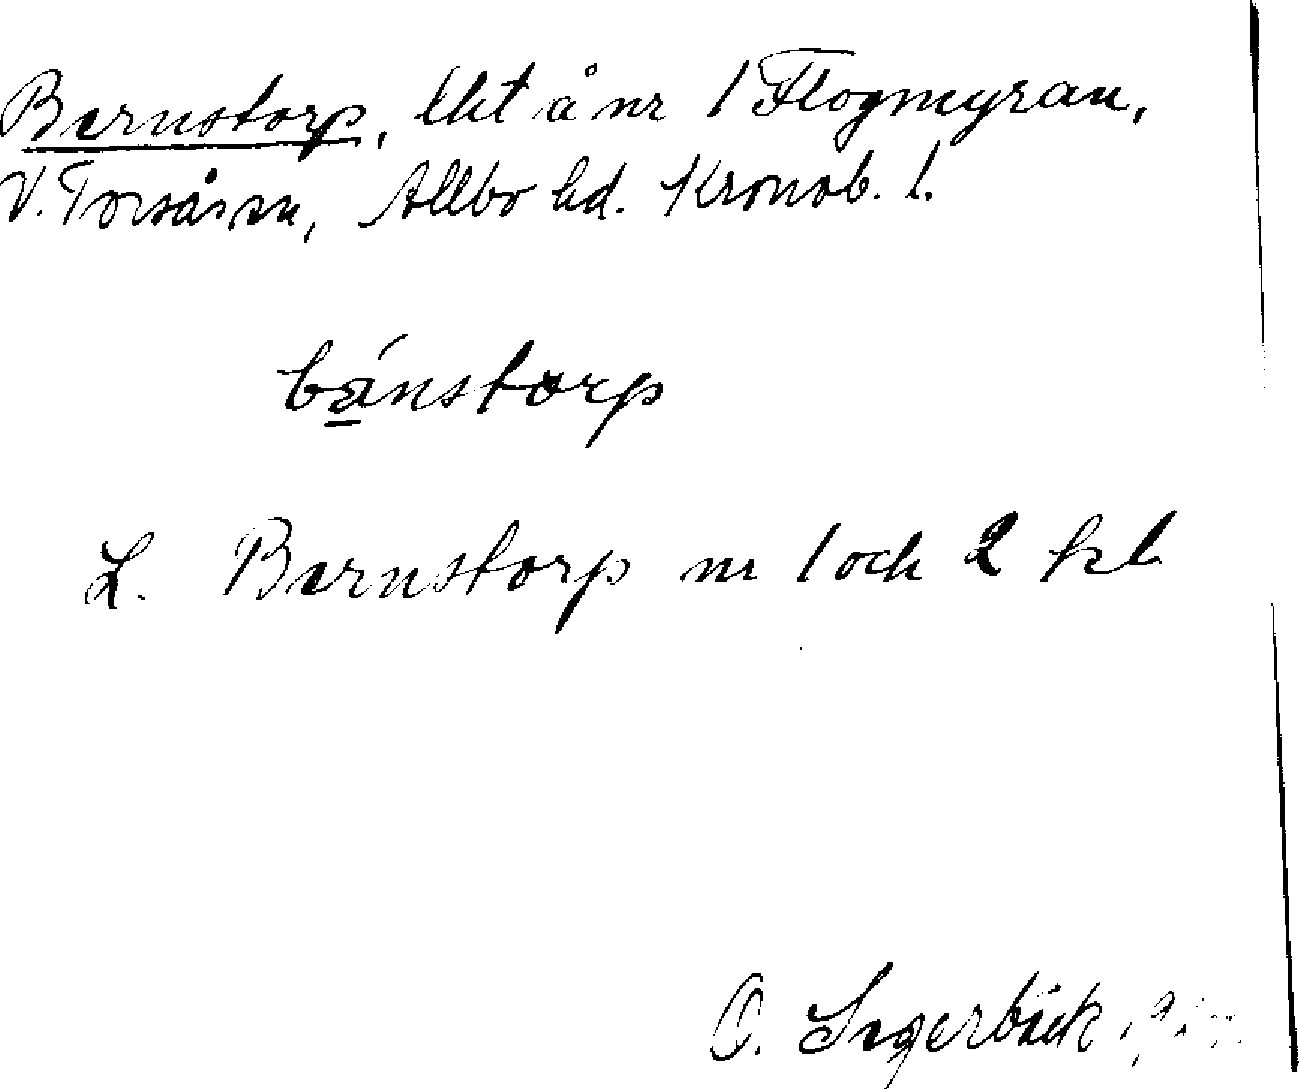 Barnstorp, lht å nr 1 Flogmyran,
V. Torsåsen, Allbo hd. Kronob. l.
bánstorp
L. Barnstorp nr 1 och 2 kl
O. Sagerbäck